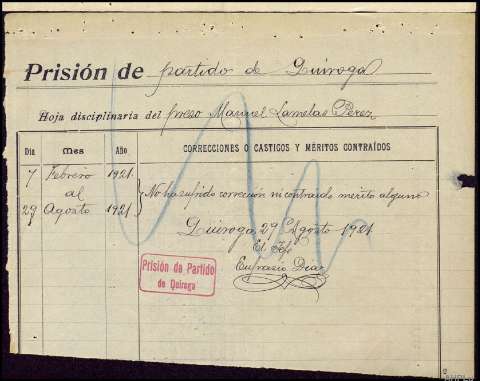 Prisión de partido de Quiroga
Hoja disciplinaria del preso Manuel Lamelas Pérez
Día Mes Año CORRECCIONES O CASTIGOS Y MÉRITOS CONTRAÍDOS
7 Febrero 1921
al
29 Agosto 1921
No ha sufrido corrección ni contraido merito alguno
Quiroga, 29 Agosto 1921
El Jefe
Eufrasio Díaz
Prisión de Partido
de Quiroga